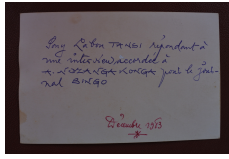 Sony Labou TANSI répondant à
une interview accordée à
A. NDZANGA KONGA pour le jour-
nal BINGO
Décembre 1983